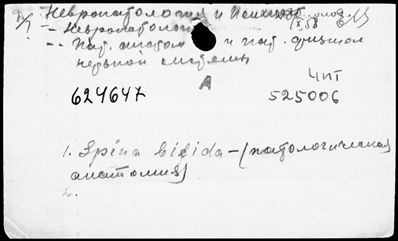 Невропатология и Психиат
IX,58
- Невропатология
-- Пат. анатом и пат. физиол
нервной системы
ЧИТ
624647 А 525006
1. Spina bifida - (патологическая
анатомия)
2.